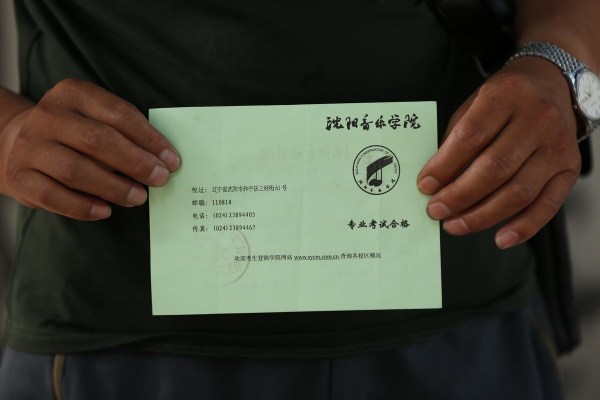 沈阳音乐学院
校址：辽宁省沈阳市和平区三好街61号
邮编：110818
电话：(024)23894405
传真：(024)23894467
专业考试合格
欢迎考生登陆学院网站 www.sycm.com.cn 查询各校区概况